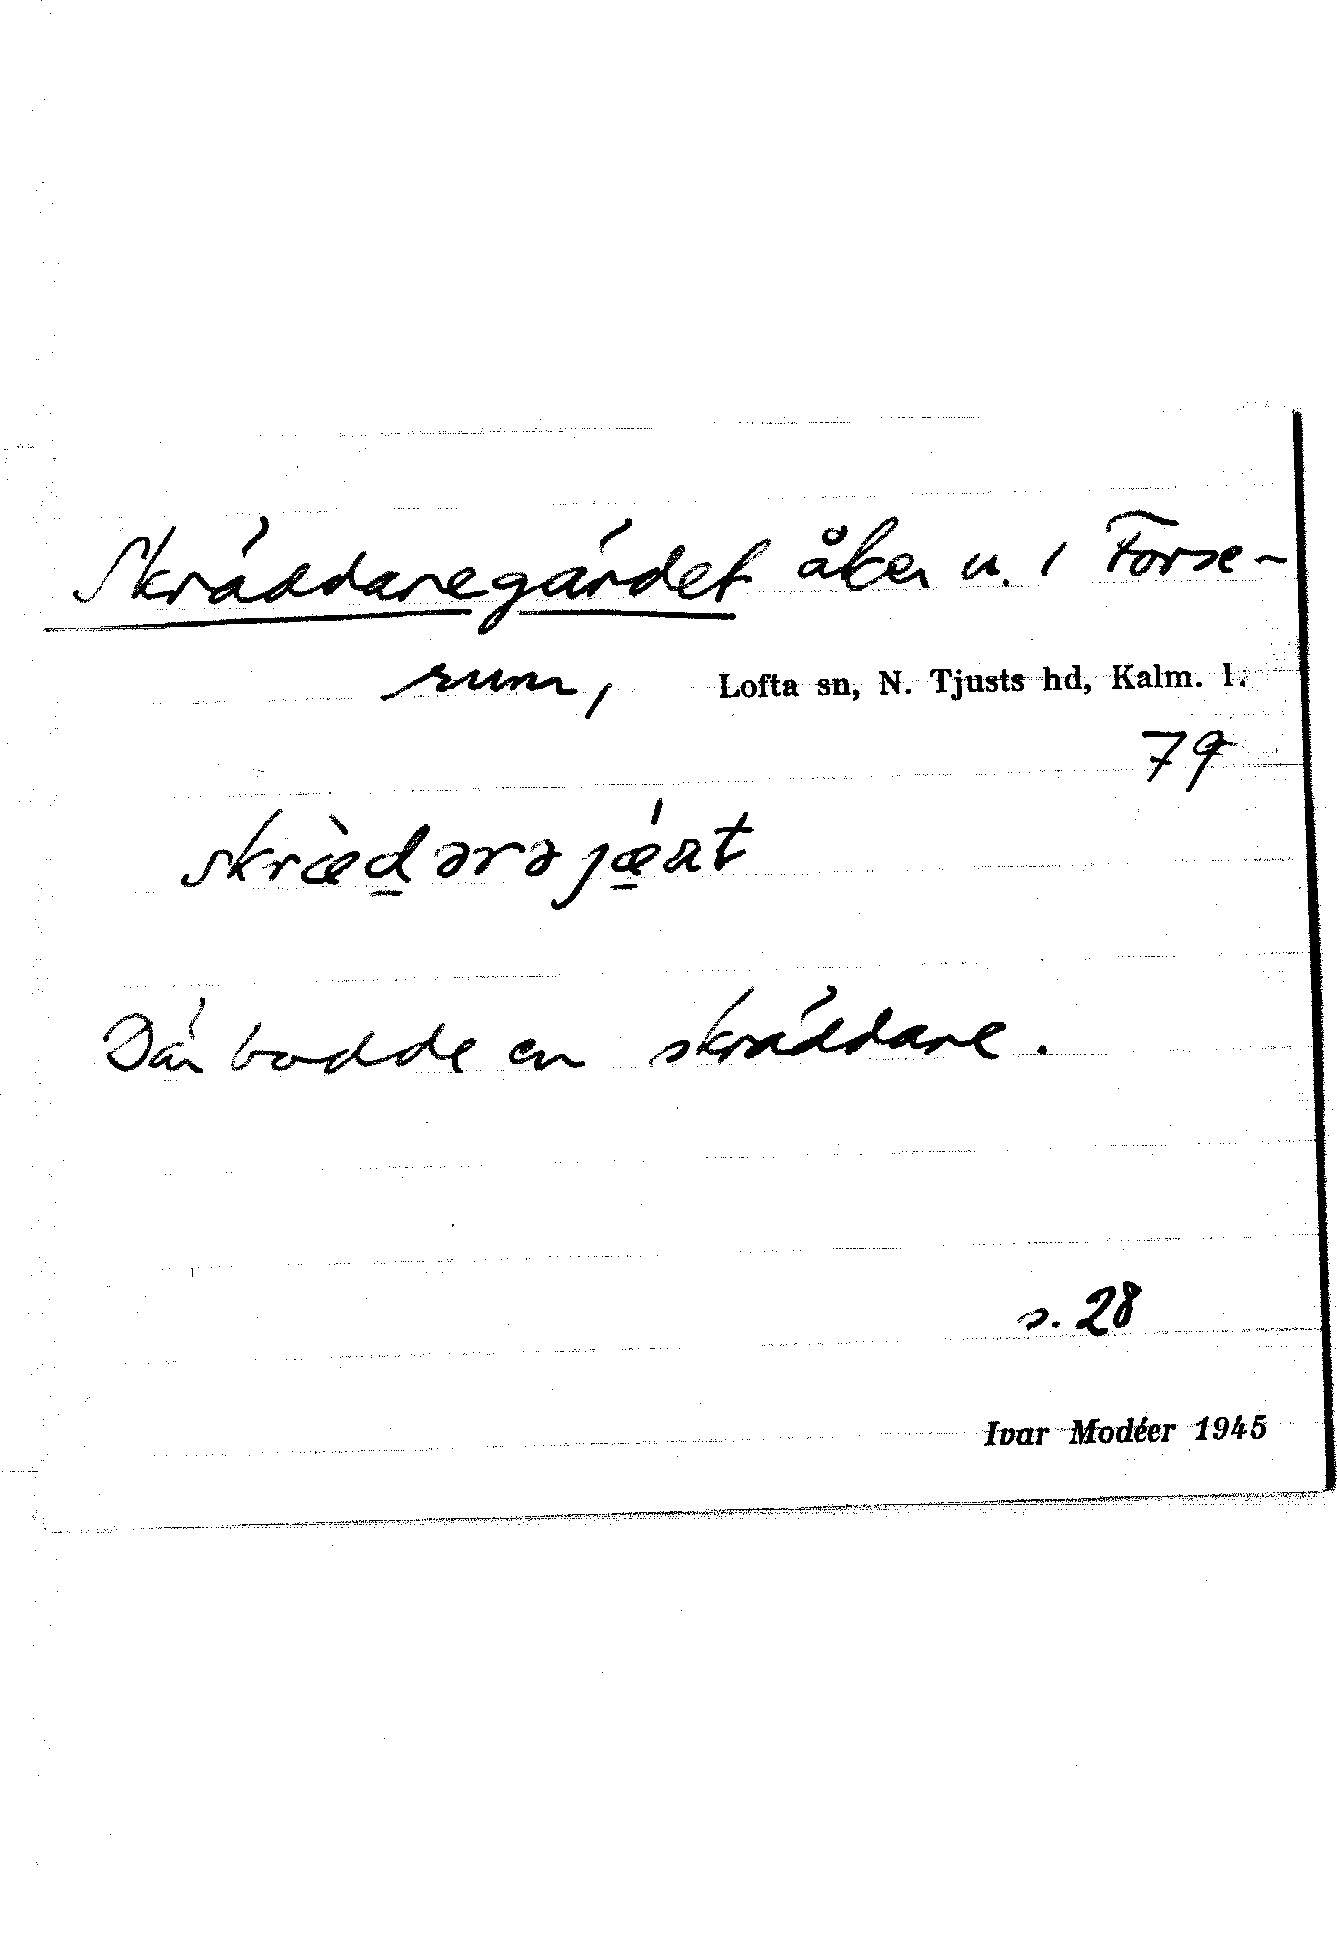 Skräddaregärdet åker u. 1 Forse-
rum, Lofta sn, N. Tjusts hd, Kalm. l.
79
skræ̀d̲ərəjǽ̲ꭆt
Där bodde en skräddare.
s. 28
Ivar Modéer 1945